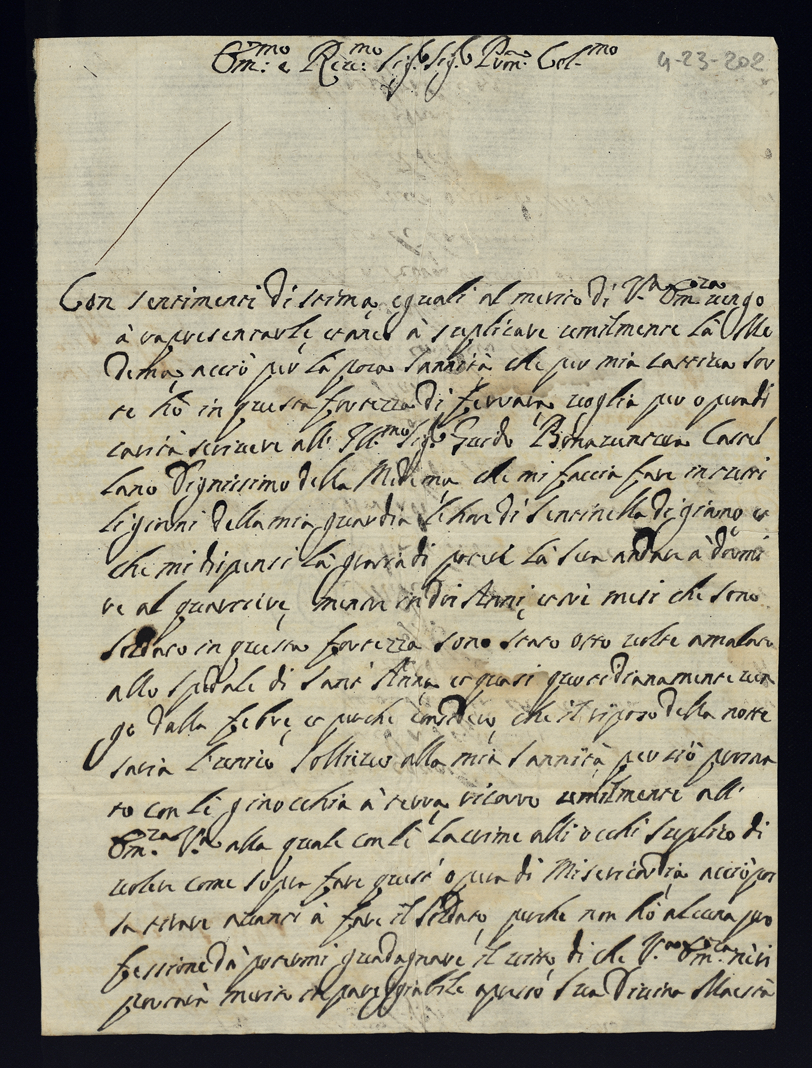 Em:mo e Rev:mo Sig:r Sig:r Pron: Col:mo
4-23-202
Con sentimenti di stima eguali al merito di V.a Em:za vengo
à rapresentarle, et anco à suplicare umilmente la Me
dema, acciò per la poca sannità che per mia cattiva sor
te hò in questa fortezza di Ferrara, voglia per opera di
carità scrivere all' Ill:mo Sig:r Guido Bonaventura Castel
lano Dignissimo della Medema che mi faccia fare in tutti
li giorni della mia guardia le hore di sentinella di giorno, et
che mi dispensi la grazia di potere la sera andare à dormi
re al quartiere, mentre in doi Anni, e trè mesi che sono
soldato in questa fortezza sono stato otto volte amalato
allo spedale di Sant' Anna, et quasi quottidianamente ven
go dalla febre, et perche considero, che il riposo della notte
saria l'unico sollievo alla mia sannità, per ciò prostra
to con li ginocchia à terra, ricorro umilmente all'
Em:za V.a alla quale con le lacrime alli occhi suplico di
voler come sopra fare quest' opera di Misericordia acciò pos
sa tirare avanti à fare il soldato, perche non hò alcuna pro
fessione dà potermi guadagnare il vitto, di che V.a Em:za ne ri
porterà merito impareggiabile apresso Sua Divina Maestà